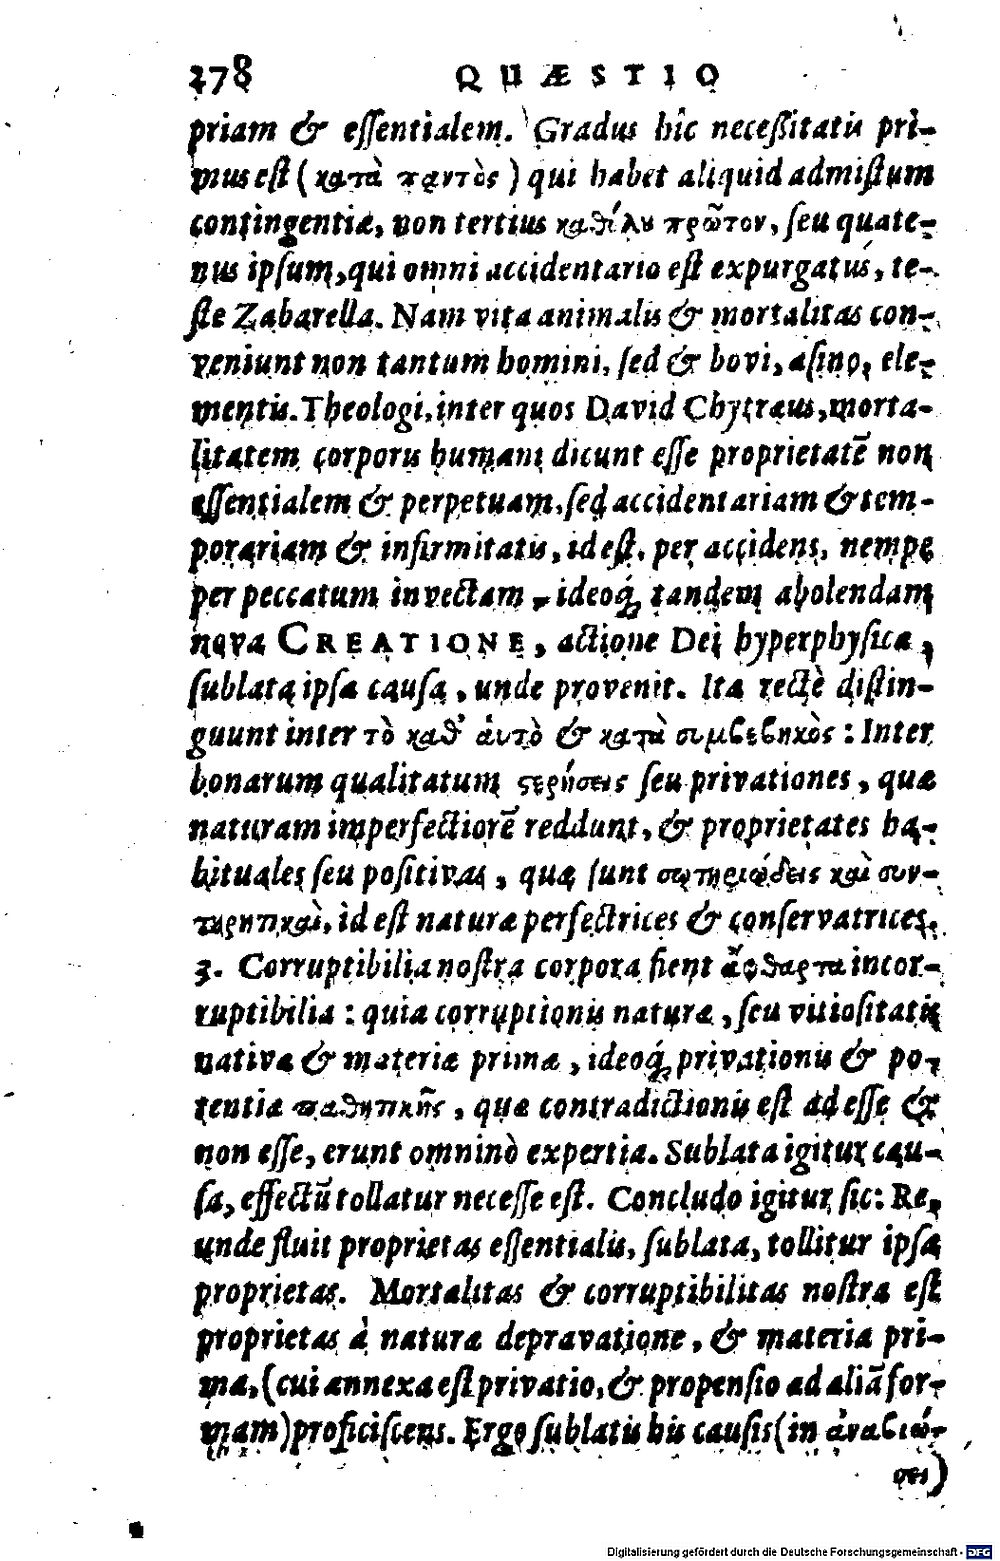 278 QUÆSTIO
priam & eſſentialem. Gradus hîc neceſſitatis pri-
mus eſt (κατὰ παντὸς) qui habet aliquid admiſtum
contingentiæ, non tertius καθόλυ πρῶτον, ſeu quate-
nus ipſum, qui omni accidentario eſt expurgatus, te-
ſte Zabarella. Nam vita animalis & mortalitas con-
veniunt non tantum homini, ſed & bovi, aſino, ele-
mentis. Theologi, inter quos David Chytræus, morta-
litatem corporis humani dicunt eſſe proprietatẽ non
eſſentialem & perpetuam, ſed accidentariam & tem-
porariam & infirmitatis, id eſt, per accidens, nempe
per peccatum invectam, ideoq́; tandem abolendam
nova CREATIONE, actione Dei hyperphyſica,
ſublata ipſa cauſa, unde provenit. Ita rectè diſtin-
guunt inter τὸ καθ' ἁυτὸ & κατὰ συμβεβηκὸς: Inter
bonarum qualitatum ϛερήσεις ſeu privationes, quæ
naturam imperfectiorẽ reddunt, & proprietates ha-
bituales ſeu poſitivas, quæ ſunt σωτηριώδεις καὶ συν-
τηρητικαὶ, id eſt naturæ perfectrices & conſervatrices.
3. Corruptibilia noſtra corpora fient ἄφθαρτα incor-
ruptibilia: quia corruptionis naturæ, ſeu vitioſitatis
nativæ & materiæ primæ, ideoq́; privationis & po-
tentiæ παθητικῆς, quæ contradictionis eſt ad eſſe &
non eſſe, erunt omninò expertia. Sublata igitur cau-
ſa, effectũ tollatur neceſſe eſt. Concludo igitur ſic: Re,
unde fluit proprietas eſſentialis, ſublata, tollitur ipſa
proprietas. Mortalitas & corruptibilitas noſtra eſt
proprietas à naturæ depravatione, & materia pri-
ma, (cui annexa eſt privatio, & propenſio ad aliã for-
mam) proficiſcens. Ergo ſublatis his cauſis (in ἀναβιώ-
σει)
Digitalisierung gefördert durch die Deutsche Forschungsgemeinschaft - DFG